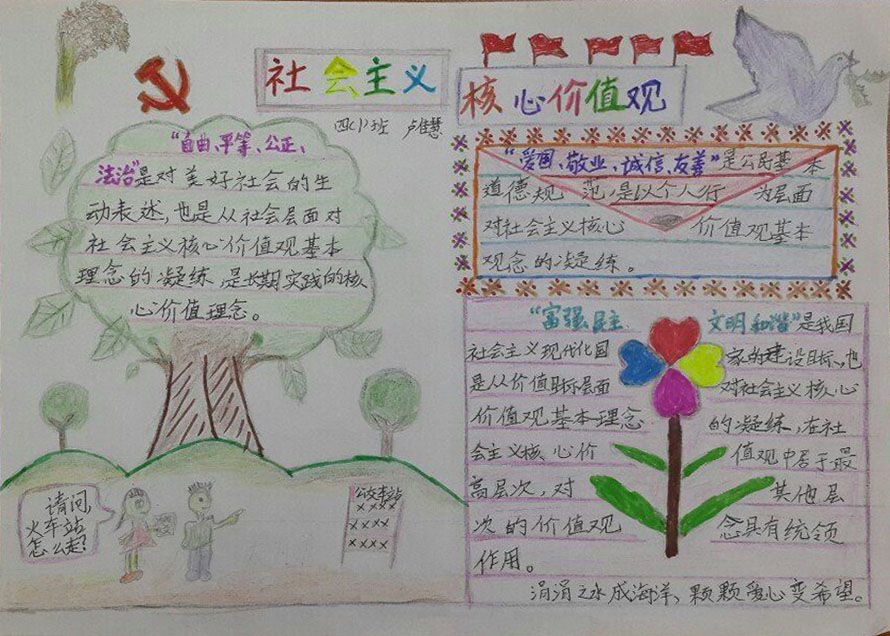 社会主义
核心价值观
四(1)班 卢佳慧
"自由、平等、公正、
法治"是对美好社会的生
动表述,也是从社会层面对
社会主义核心价值观基本
理念的凝练,是长期实践的核
心价值理念。
"爱国、敬业、诚信、友善"是公民基本
道德规范,是以个人行为层面
对社会主义核心价值观基本
观念的凝练。
"富强民主文明和谐"是我国
社会主义现代化国家的建设目标、也
是从价值目标层面对社会主义核心
价值观基本理念的凝练,在社
会主义核心价值观中居于最
高层次,对其他层
次的价值观念具有统领
作用。
涓涓之水成海洋、颗颗爱心变希望。
请问,
火车站
怎么走?
公交车站
××××
×××
×××